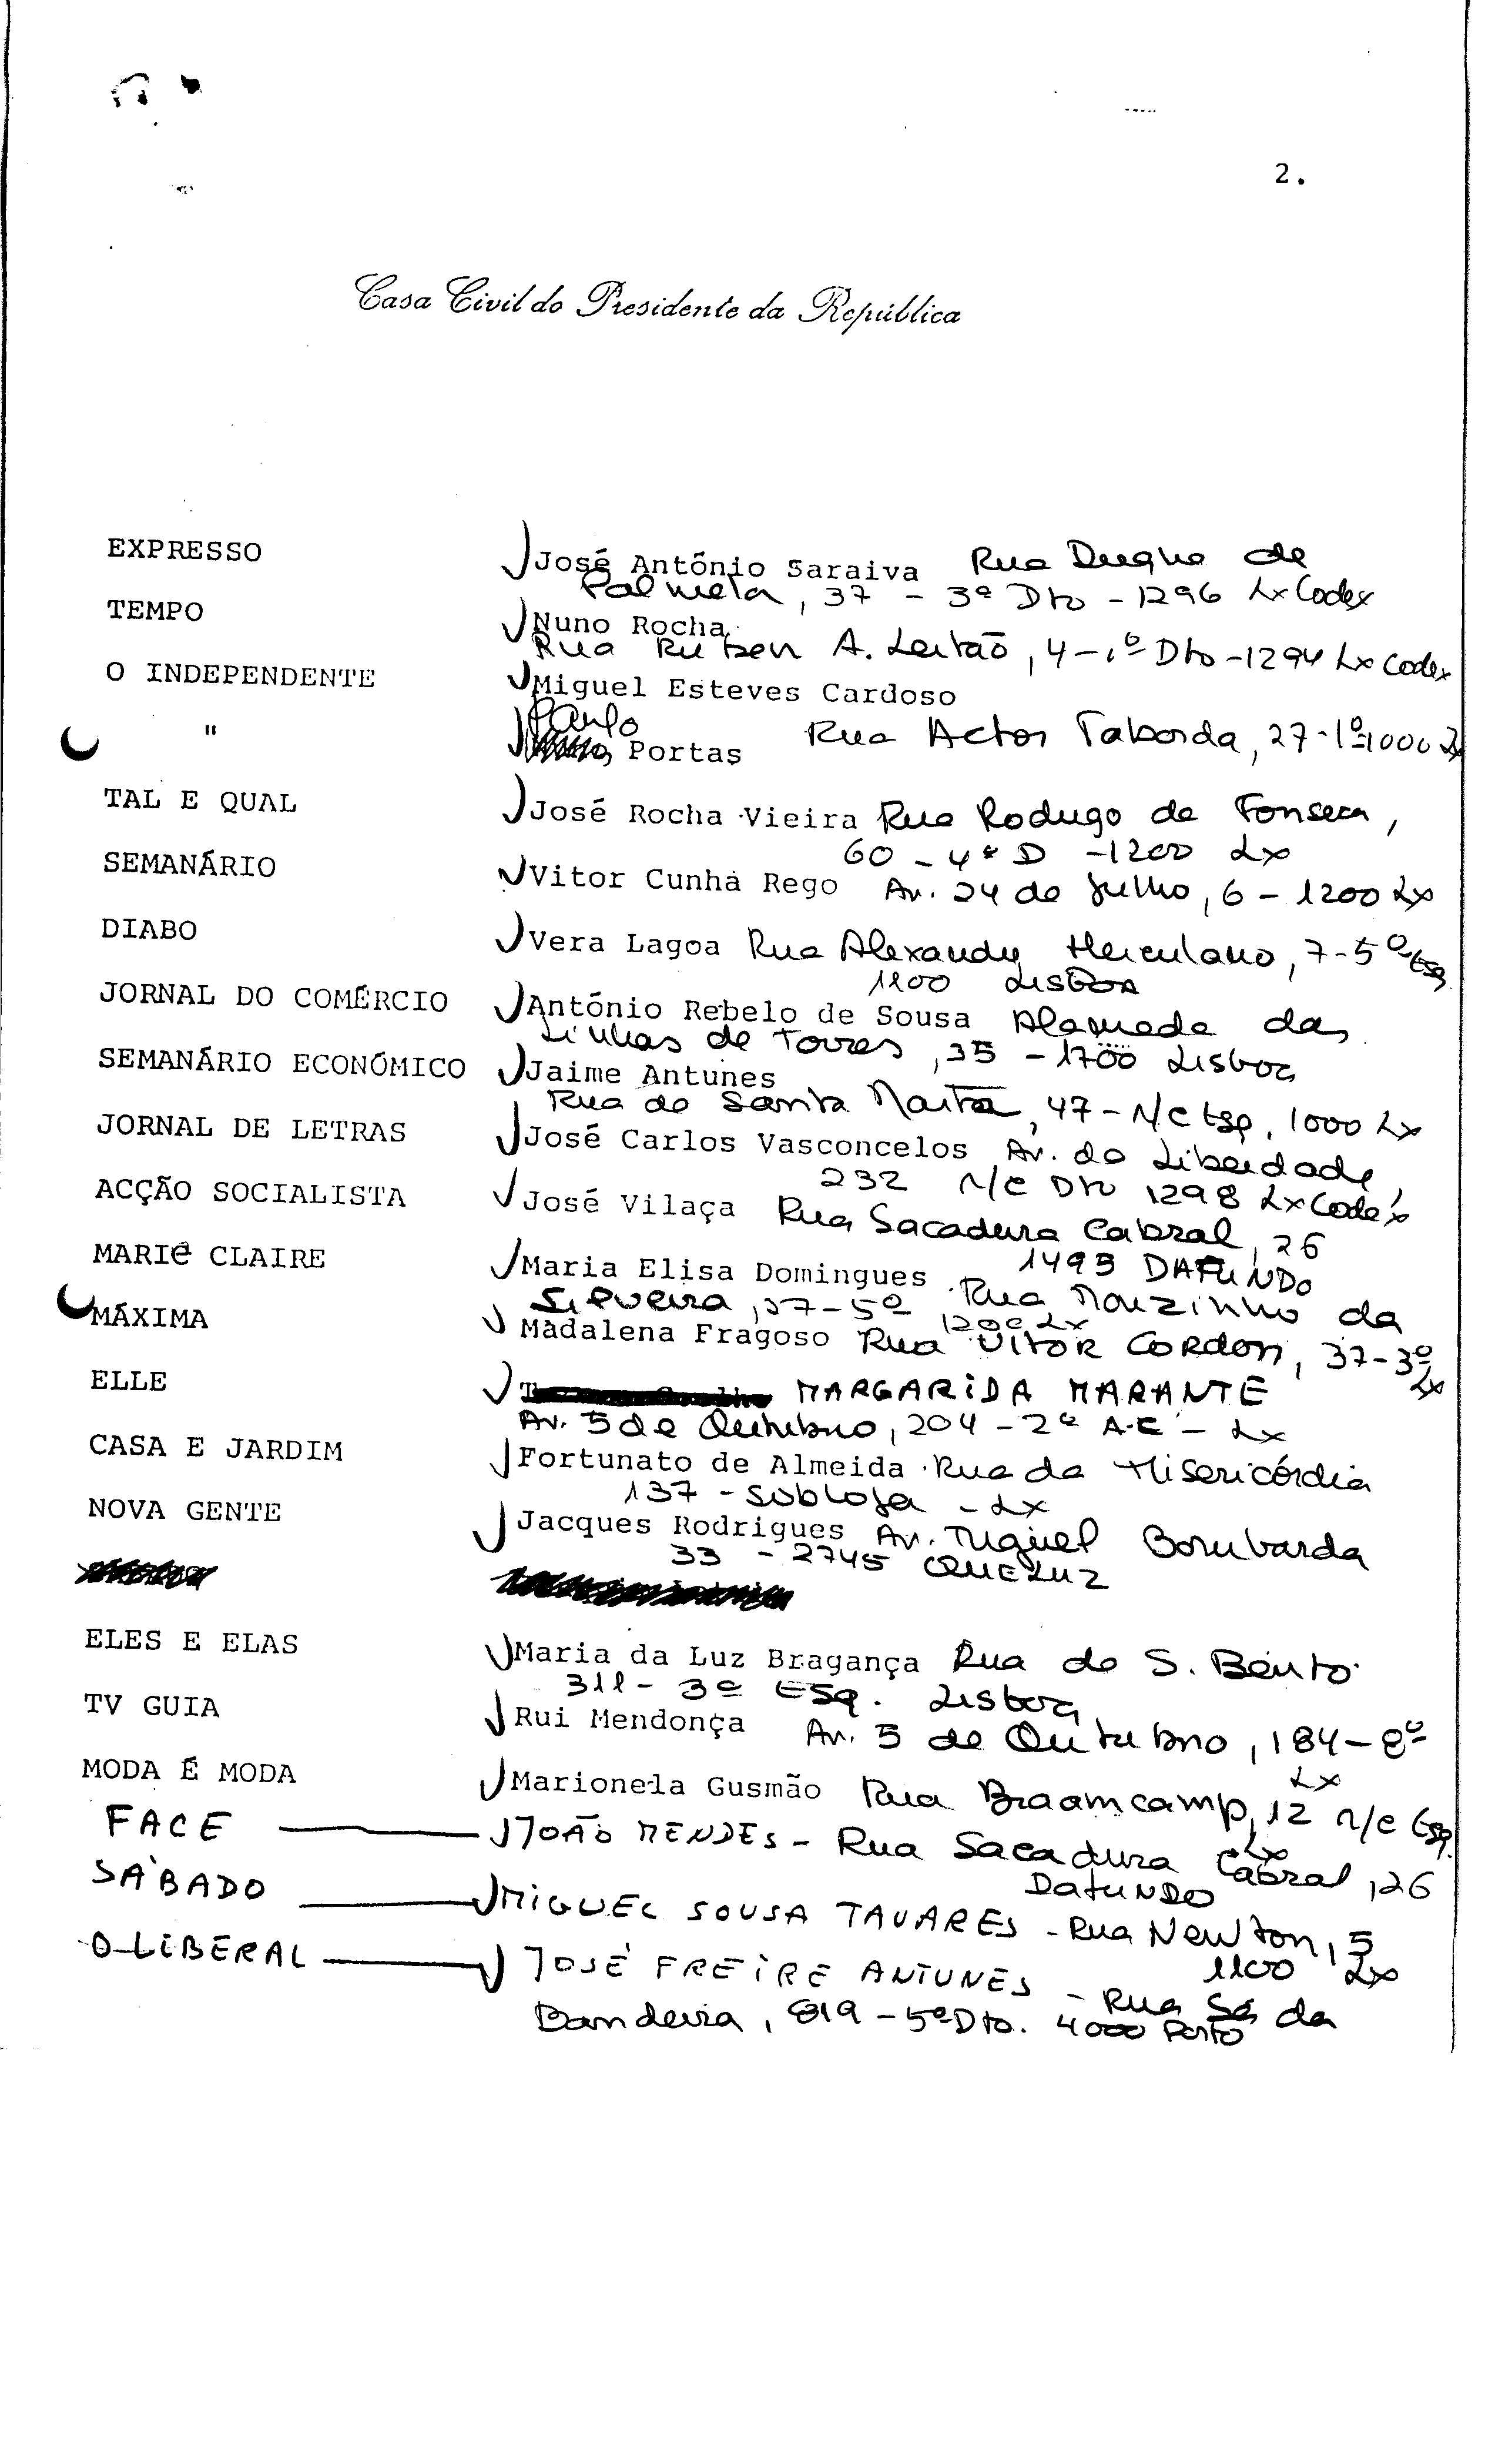 2.
Casa Civil do Presidente da República
EXPRESSO José António Saraiva Rua Duque de
Palmela, 37 - 3º Dto - 1296 Lx Codex
TEMPO Nuno Rocha
Rua Ruben A. Leitão, 4 - 1º Dto - 1294 Lx Codex
O INDEPENDENTE Miguel Esteves Cardoso
Paulo
" Portas Rua Actor Taborda, 27 - 1º - 1000 Lx
TAL E QUAL José Rocha Vieira Rua Rodrigo da Fonseca,
60 - 4º D - 1200 Lx
SEMANÁRIO Vitor Cunha Rego Av. 24 de Julho, 6 - 1200 Lx
DIABO Vera Lagoa Rua Alexandre Herculano, 7 - 5º Esq
1100 Lisboa
JORNAL DO COMÉRCIO António Rebelo de Sousa Alameda das
Linhas de Torres, 35 - 1700 Lisboa
SEMANÁRIO ECONÓMICO Jaime Antunes
Rua de Santa Marta, 47 - r/c Esq, 1000 Lx
JORNAL DE LETRAS José Carlos Vasconcelos Av. da Liberdade,
232 r/c Dto 1298 Lx Codex
ACÇÃO SOCIALISTA José Vilaça Rua Sacadura Cabral, 26
1495 DAFUNDO
MARIe CLAIRE Maria Elisa Domingues Rua Mouzinho da
Silveira, 27 - 5º 1200 Lx
MÁXIMA Madalena Fragoso Rua VITOR CORDON, 37 - 3º
Lx
ELLE MARGARIDA MARANTE
Av. 5 de Outubro, 204 - 2º A.E - Lx
CASA E JARDIM Fortunato de Almeida Rua da Misericórdia
137 - Subloja - Lx
NOVA GENTE Jacques Rodrigues Av. Miguel Bombarda
33 - 2745 QUELUZ
ELES E ELAS Maria da Luz Bragança Rua de S. Bento
311 - 3º Esq. Lisboa
TV GUIA Rui Mendonça Av. 5 de Outubro, 184 - 8º
Lx
MODA É MODA Marionela Gusmão Rua Braamcamp, 12 r/c Esq.
Lx
FACE JOÃO MENDES - Rua Sacadura Cabral, 26
DAFUNDO
SÁBADO MIGUEL SOUSA TAVARES - Rua Newton, 5
1100 Lx
O LIBERAL JOSÉ FREIRE ANTUNES - Rua Sá da
Bandeira, 819 - 5º Dto. 4000 Porto